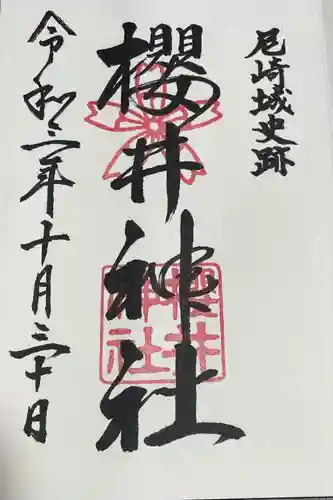 尼崎城史跡
櫻井神社
櫻井神社
令和二年十月三十日